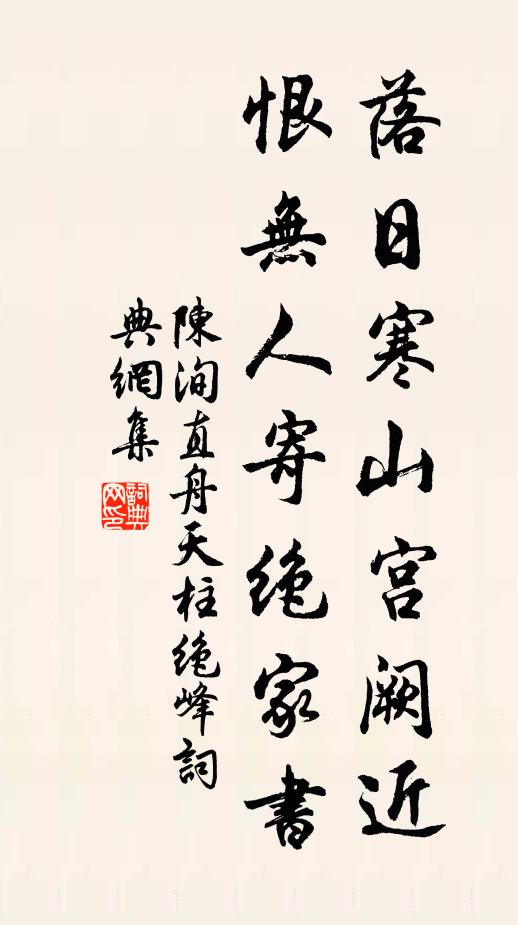 落日寒山宫阙近
恨無人寄绝家書
陳洵直舟天柱绝峰詞
典網集
詞典网印